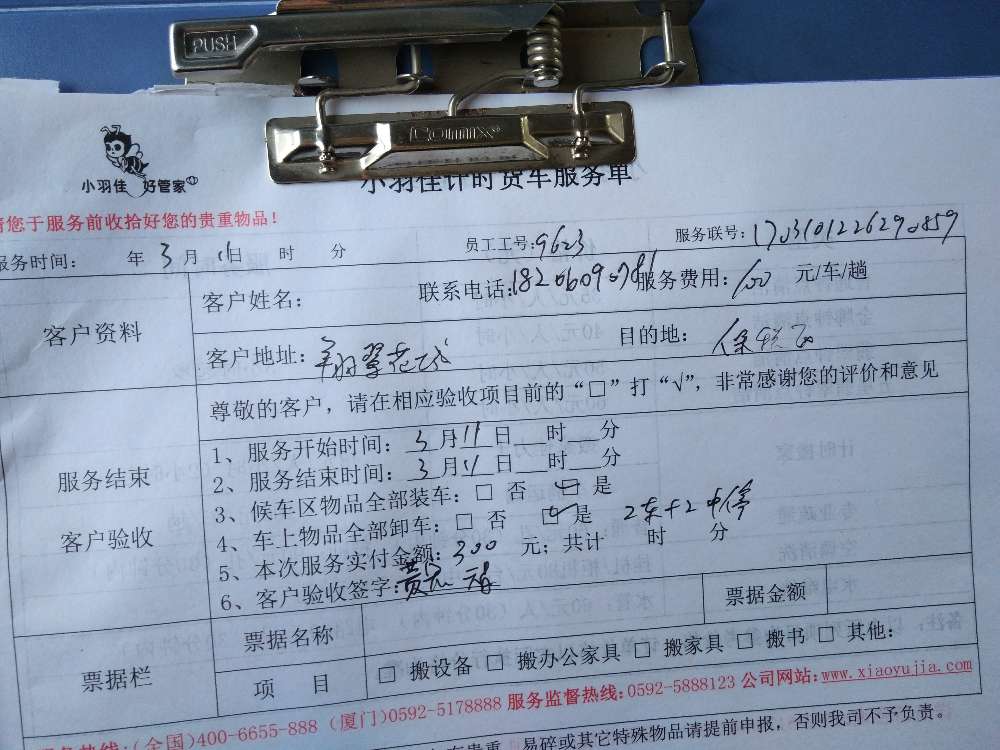 PUSH
Comix
小羽佳 好管家
小羽佳计时货车服务单
请您于服务前收拾好您的贵重物品！
服务时间： 年 3 月 11 日 时 分 员工工号：9623 服务联号：1703101226290859
客户资料
客户姓名： 联系电话：18206090781 服务费用：100 元/车/趟
客户地址： 目的地：
尊敬的客户，请在相应验收项目前的“□”打“√”，非常感谢您的评价和意见
服务结束
客户验收
1、服务开始时间：3月11日 时 分
2、服务结束时间：3月11日 时 分
3、候车区物品全部装车：□ 否 ☑ 是
4、车上物品全部卸车：□ 否 ☑ 是 2车+2中停
5、本次服务实付金额：300 元；共计 时 分
6、客户验收签字：
票据栏
票据名称
票据金额
项 目
□ 搬设备 □ 搬办公家具 □ 搬家具 □ 搬书 □ 其他：
服务热线：(全国)400-6655-888 (厦门)0592-5178888 服务监督热线：0592-5888123 公司网站：www.xiaoyujia.com
贵重、易碎或其它特殊物品请提前申报，否则我司不予负责。